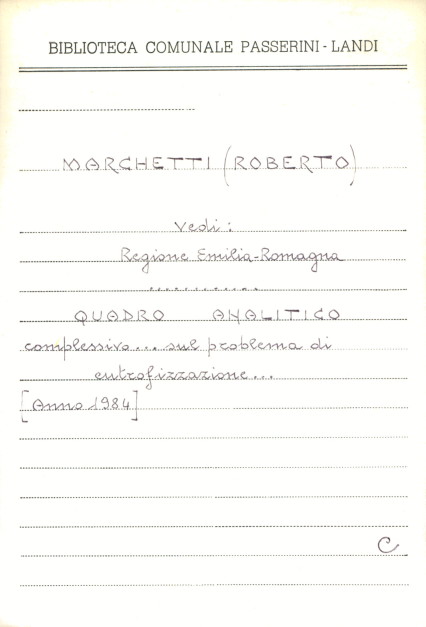 BIBLIOTECA COMUNALE PASSERINI - LANDI
MARCHETTI (ROBERTO)
Vedi:
Regione Emilia-Romagna
............
QUADRO ANALITICO
complessivo... sul problema di
eutrofizzazione...
[Anno 1984]
C